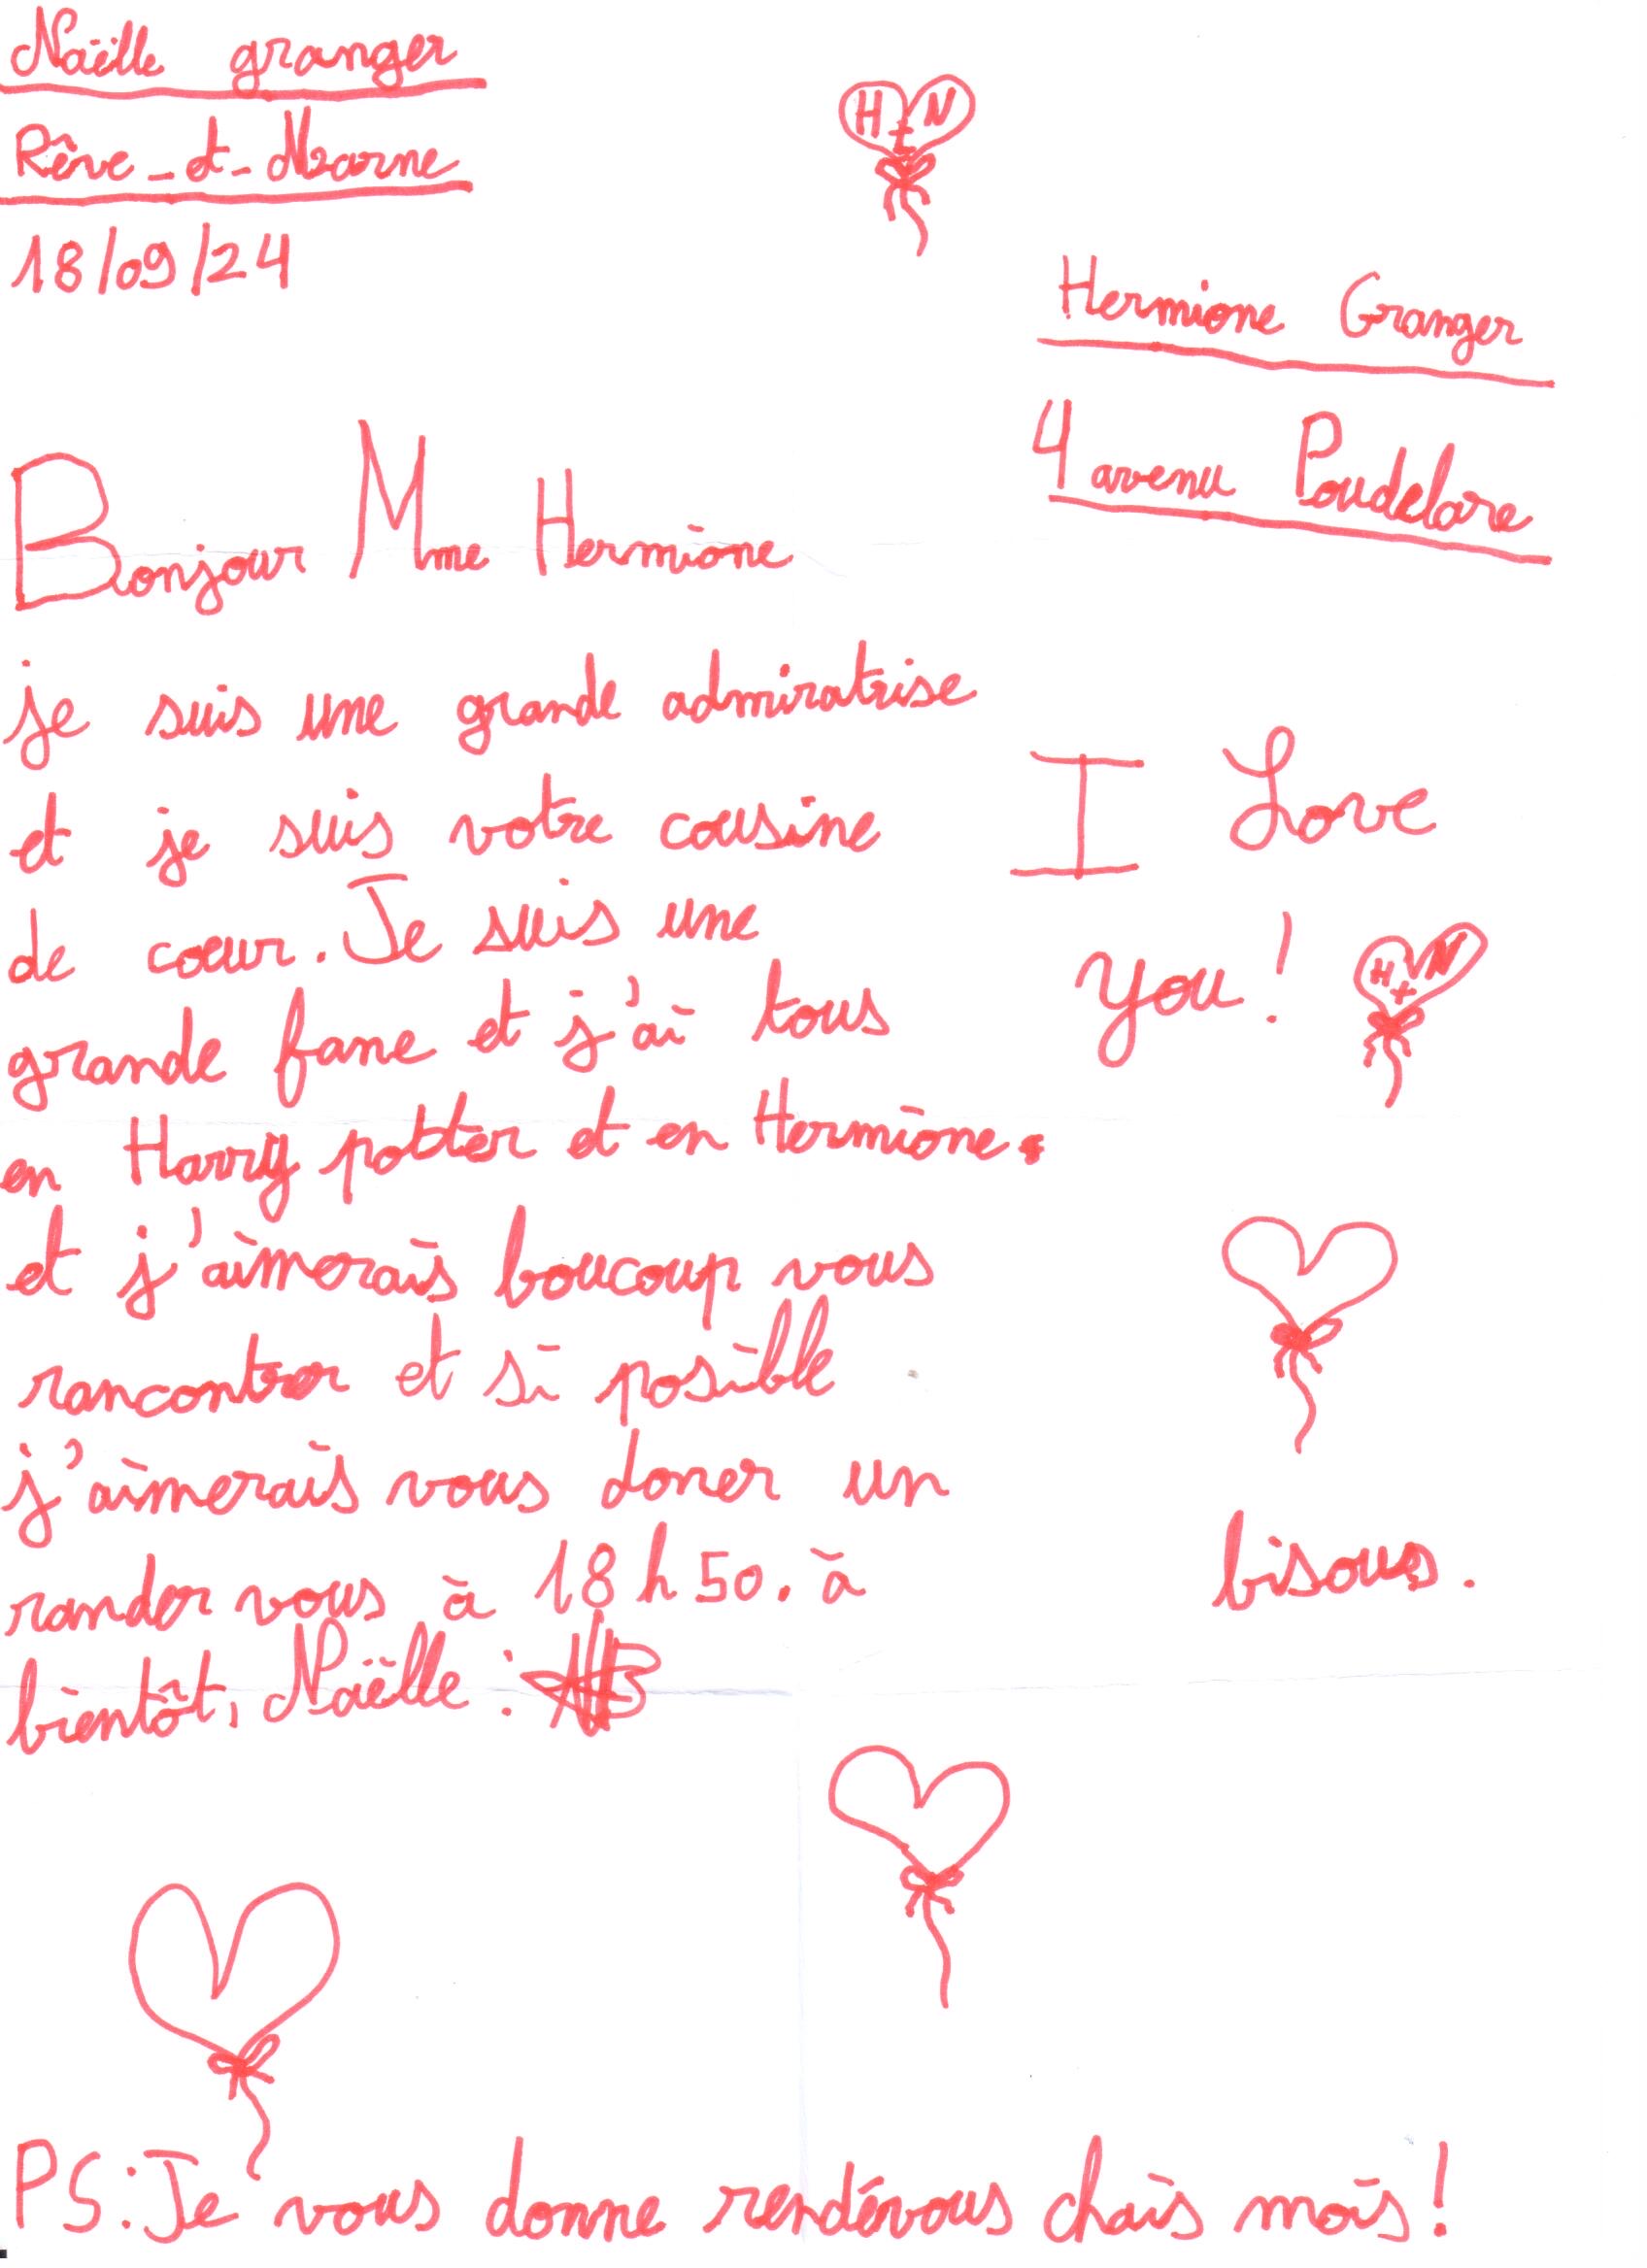 Naëlle granger
Rêve-et-Marne
18/09/24
H + N
Hermione Granger
4 avenu Poudelare
Bonjour Mme Hermione
je suis une grande admiratrise
et je suis votre cousine
de coeur. Je suis une
grande fane et j'ai tous
en Harry potter et en Hermione.
et j'aimerais boucoup vous
rancontrer et si posible
j'aimerais vous doner un
rander vous à 18h50. à
bientôt, Naëlle :
I Love
you!
H + N
bisous.
PS: Je vous donne rendévous chais mois!